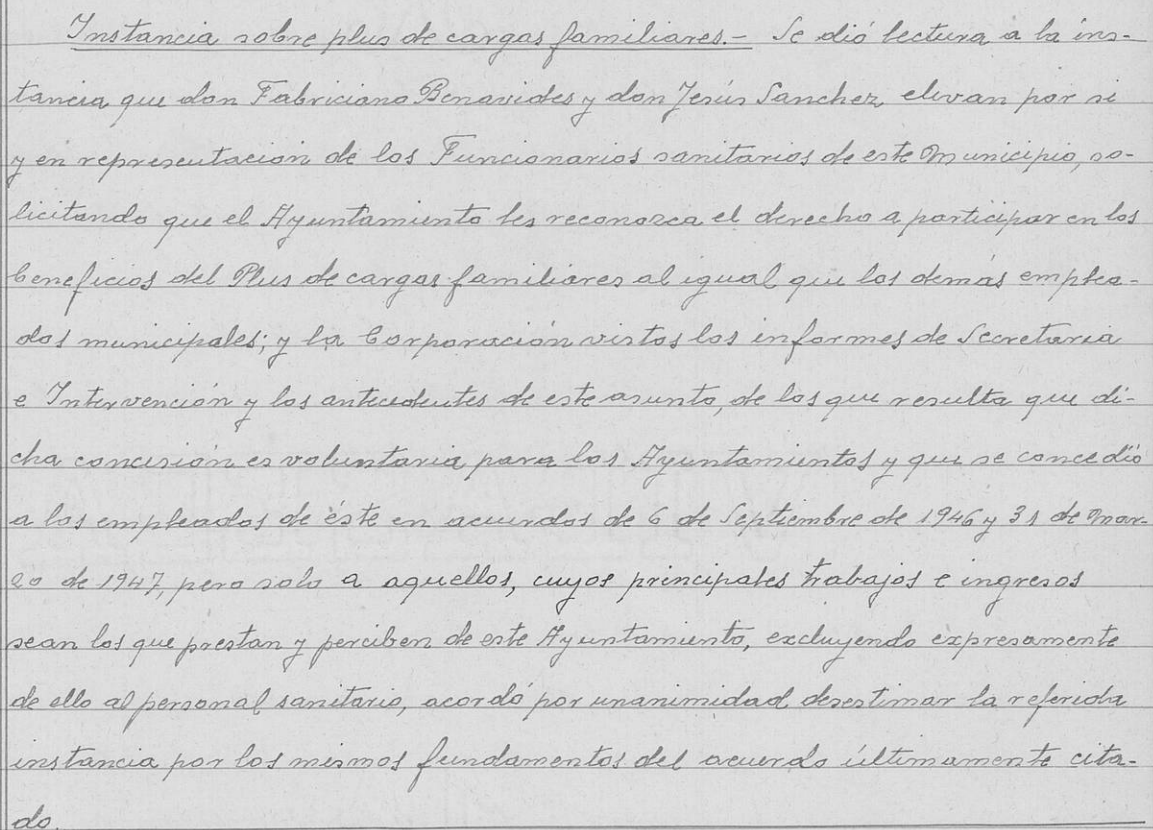 Instancia sobre plus de cargas familiares.- Se dió lectura a la ins-
tancia que don Fabriciano Benavides y don Jesús Sanchez elevan por si
y en representación de los Funcionarios sanitarios de este Municipio, so-
licitando que el Ayuntamiento les reconozca el derecho a participar en los
beneficios del Plus de cargas familiares al igual que los demás emplea-
dos municipales; y la Corporación vistos los informes de Secretaria
e Intervención y los antecedentes de este asunto, de los que resulta que di-
cha concesión es voluntaria para los Ayuntamientos y que se concedió
a los empleados de éste en acuerdos de 6 de Septiembre de 1946 y 31 de Mar-
zo de 1947, pero solo a aquellos, cuyos principales trabajos e ingresos
sean los que prestan y perciben de este Ayuntamiento, excluyendo expresamente
de ello al personal sanitario, acordó por unanimidad desestimar la referida
instancia por los mismos fundamentos del acuerdo últimamente cita-
do.